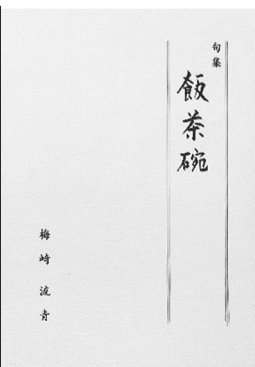 句集
飯茶碗
梅崎流青